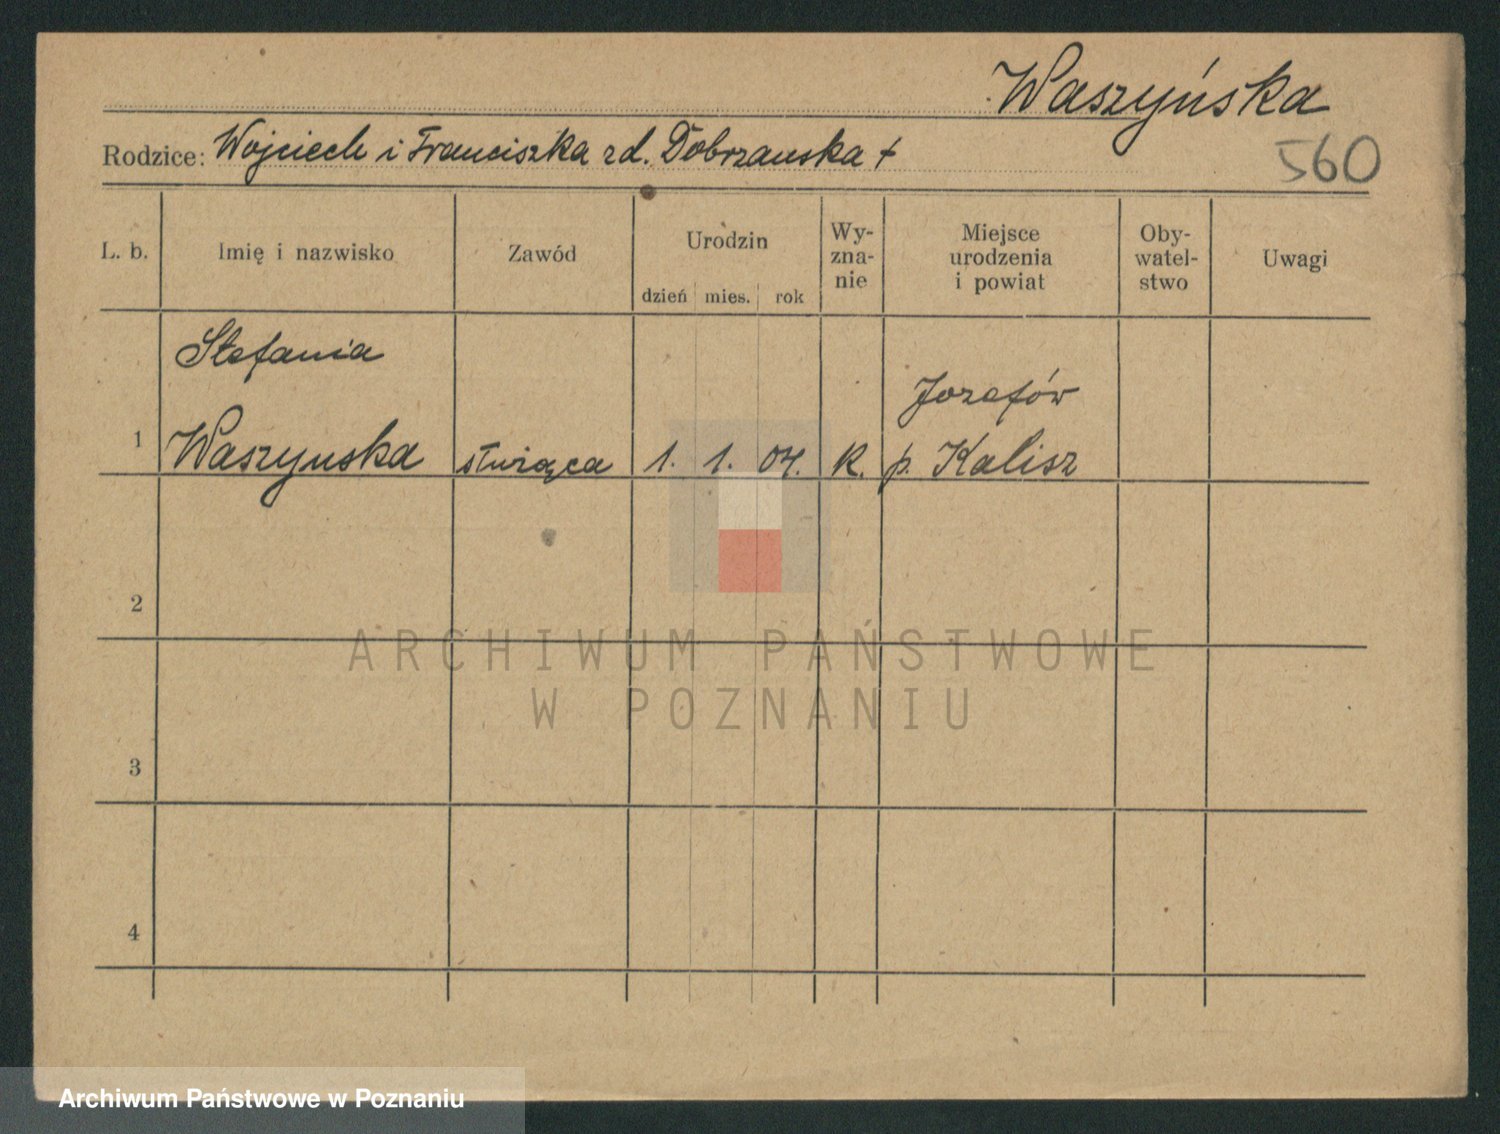 Waszyńska
Rodzice: Wojciech i Franciszka zd. Dobrzanska +
560
L. b. Imię i nazwisko Zawód Urodzin dzień mies. rok Wy-zna-nie Miejsce urodzenia i powiat Oby-watel-stwo Uwagi
Stefania
Jozefów
1 Waszynska służąca 1. 1. 04. k. p. Kalisz
2
ARCHIWUM PAŃSTWOWE
W POZNANIU
3
4
Archiwum Państwowe w Poznaniu